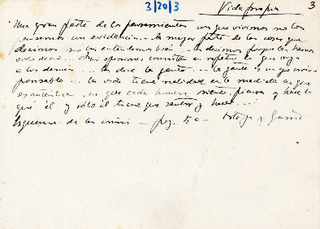 3/20/3 Vida propia 3
"Muy gran parte de los pensamientos con que vivimos no los
pensamos con evidencia... la mayor parte de las cosas que
decimos no las entendemos bien... las decimos porque las hemos
oído decir... Sus opiniones consisten en repetir lo que oye
a los demás... lo dice la gente... la gente es un
... la vida tiene realidad en la medida en que
es auténtica... en que cada hombre siente, piensa y hace lo
que él y sólo él tiene que sentir y hacer...
Esquema de las crisis - pág. 50 - Ortega y Gasset